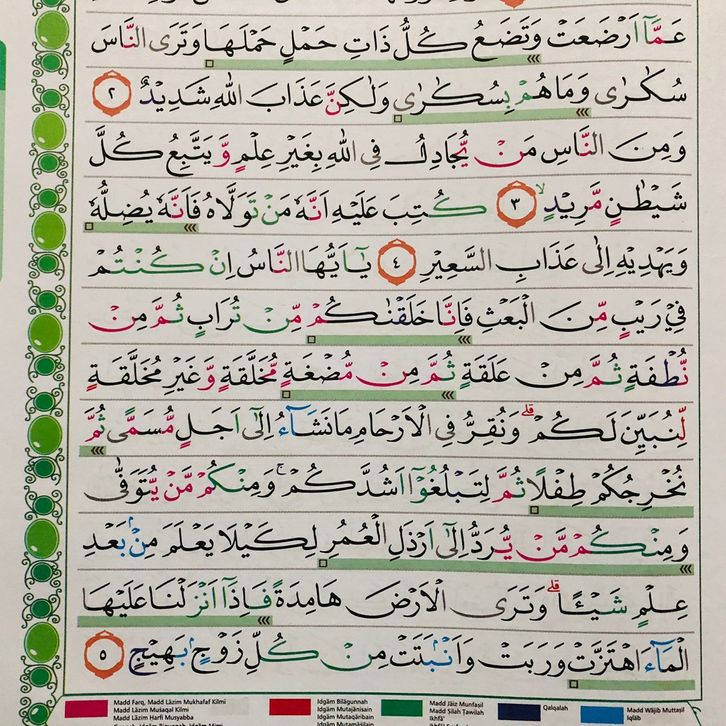 عَمَّآ اَرْضَعَتْ وَتَضَعُ كُلُّ ذَاتِ حَمْلٍ حَمْلَهَا وَتَرَى النَّاسَ
سُكٰرٰى وَمَا هُمْ بِسُكٰرٰى وَلٰكِنَّ عَذَابَ اللّٰهِ شَدِيْدٌ ٢
وَمِنَ النَّاسِ مَنْ يُّجَادِلُ فِى اللّٰهِ بِغَيْرِ عِلْمٍ وَّيَتَّبِعُ كُلَّ
شَيْطٰنٍ مَّرِيْدٍۙ ٣ كُتِبَ عَلَيْهِ اَنَّهٗ مَنْ تَوَلَّاهُ فَاَنَّهٗ يُضِلُّهٗ
وَيَهْدِيْهِ اِلٰى عَذَابِ السَّعِيْرِ ٤ يٰٓاَيُّهَا النَّاسُ اِنْ كُنْتُمْ
فِيْ رَيْبٍ مِّنَ الْبَعْثِ فَاِنَّا خَلَقْنٰكُمْ مِّنْ تُرَابٍ ثُمَّ مِنْ
نُّطْفَةٍ ثُمَّ مِنْ عَلَقَةٍ ثُمَّ مِنْ مُّضْغَةٍ مُّخَلَّقَةٍ وَّغَيْرِ مُخَلَّقَةٍ
لِّنُبَيِّنَ لَكُمْۗ وَنُقِرُّ فِى الْاَرْحَامِ مَا نَشَاۤءُ اِلٰٓى اَجَلٍ مُّسَمًّى ثُمَّ
نُخْرِجُكُمْ طِفْلًا ثُمَّ لِتَبْلُغُوْٓا اَشُدَّكُمْۚ وَمِنْكُمْ مَّنْ يُّتَوَفّٰى
وَمِنْكُمْ مَّنْ يُّرَدُّ اِلٰٓى اَرْذَلِ الْعُمُرِ لِكَيْلَا يَعْلَمَ مِنْۢ بَعْدِ
عِلْمٍ شَيْـًٔاۗ وَتَرَى الْاَرْضَ هَامِدَةً فَاِذَآ اَنْزَلْنَا عَلَيْهَا
الْمَاۤءَ اهْتَزَّتْ وَرَبَتْ وَاَنْۢبَتَتْ مِنْ كُلِّ زَوْجٍۢ بَهِيْجٍ ٥
Madd Farq, Madd Lāzim Mukhafaf Kilmi
Madd Lāzim Musaqal Kilmi
Madd Lāzim Ḥarfi Musyabba
Idgām Bilāgunnah
Idgām Mutajānisain
Idgām Mutaqāribain
Idgām Mutamāṡilain
Madd Jāiz Munfasil
Madd Ṣilah Ṭawilah
Ikhfā'
Qalqalah
Madd Wājib Muttaṣil
Iqlāb